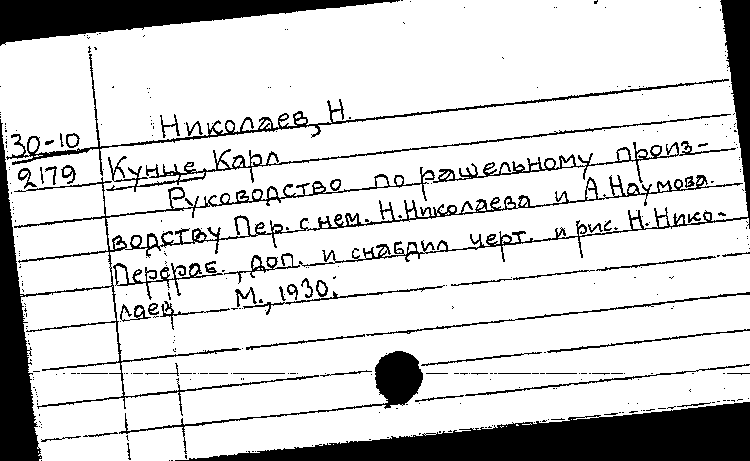 Николаев, Н.
30-10
2179
Кунце, Карл
Руководство по рашельному произ-
водству Пер. с нем. Н.Николаева и А.Наумова.
Перераб., доп. и снабдил черт. и рис. Н.Нико-
лаев. М., 1930.